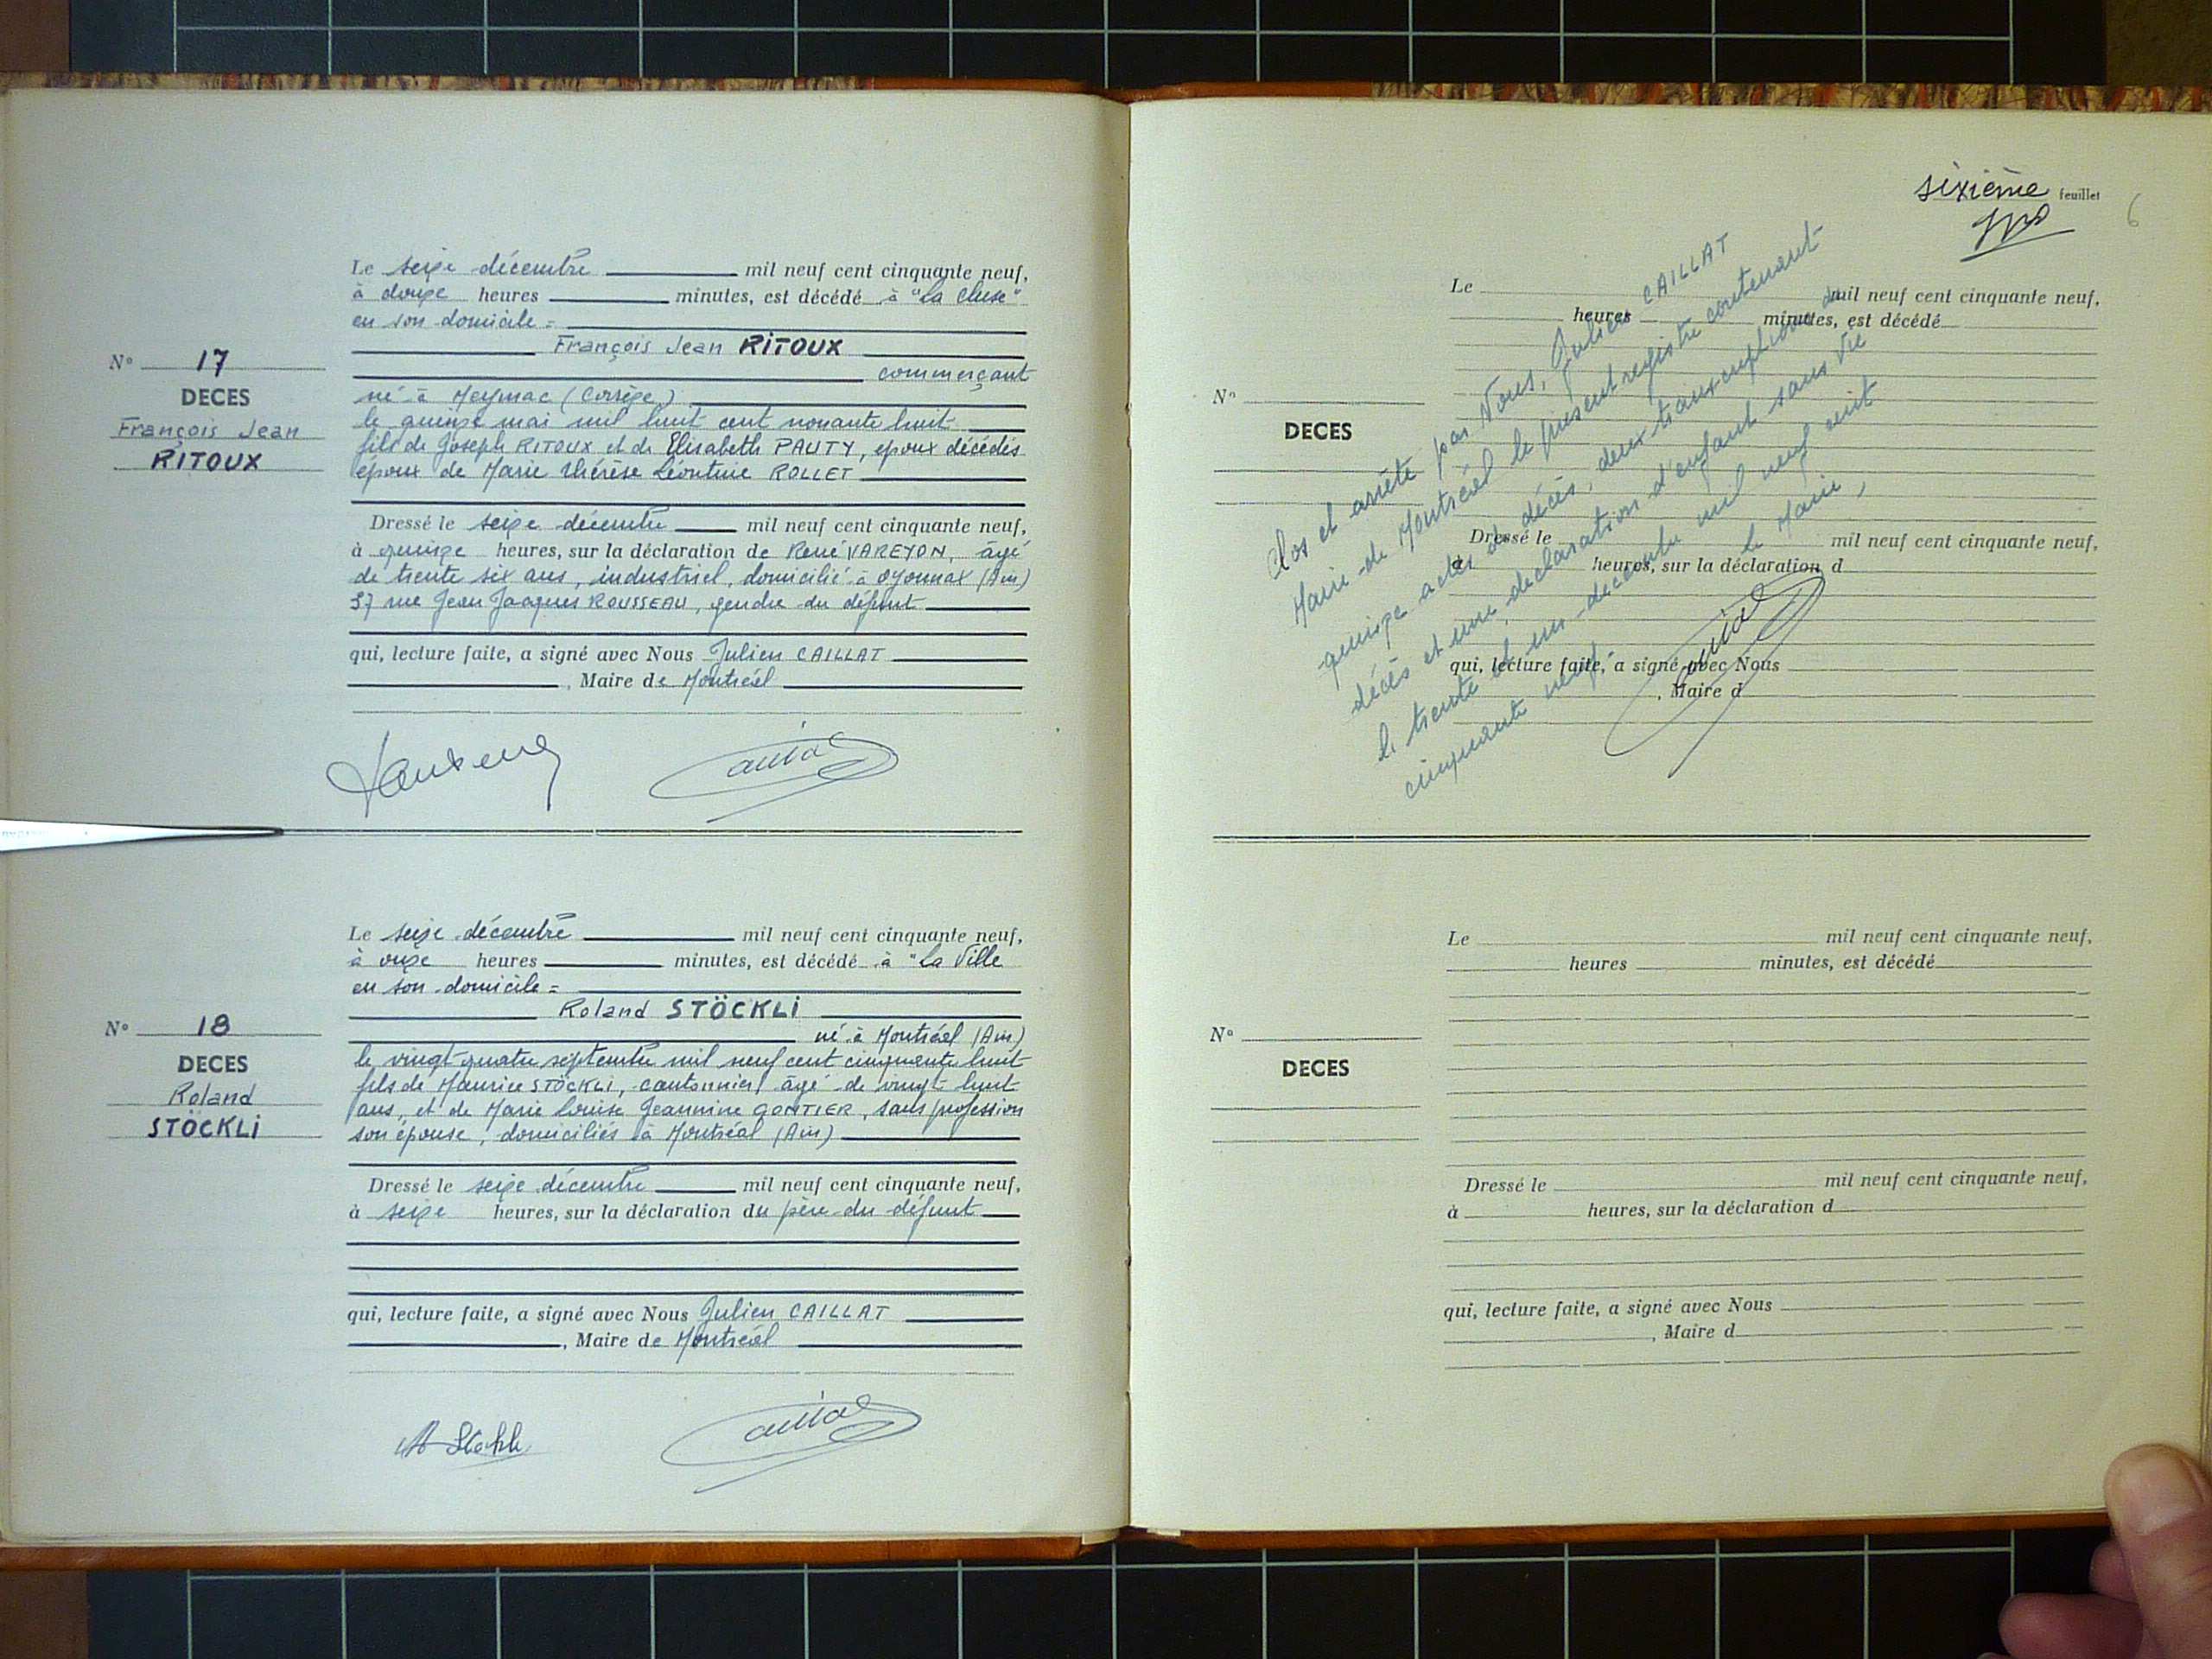 Le seize décembre mil neuf cent cinquante neuf,
à douze heures minutes, est décédé à "La Cluse"
en son domicile =
François Jean RITOUX
commerçant
N° 17
DECES
François Jean
RITOUX
né à Meymac (Corrèze)
le quinze mai mil huit cent nonante huit
fils de Joseph RITOUX et de Elisabeth PAUTY, époux décédés
époux de Marie Thérèse Léontine ROLLET
Dressé le seize décembre mil neuf cent cinquante neuf,
à quinze heures, sur la déclaration de René VAREYON, âgé
de trente six ans, industriel, domicilié à Oyonnax (Ain)
37 rue Jean Jacques ROUSSEAU, gendre du défunt
qui, lecture faite, a signé avec Nous Julien CAILLAT
, Maire de Montréal
Le seize décembre mil neuf cent cinquante neuf,
à onze heures minutes, est décédé à "La Ville
en son domicile =
Roland STÖCKLI
N° 18
DECES
Roland
STÖCKLI
né à Montréal (Ain)
le vingt-quatre septembre mil neuf cent cinquante huit
fils de Maurice STÖCKLI, cantonnier, âgé de vingt-huit
ans, et de Marie Louise Jeannine GONTIER, sans profession
son épouse, domiciliés à Montréal (Ain)
Dressé le seize décembre mil neuf cent cinquante neuf,
à seize heures, sur la déclaration du père du défunt
qui, lecture faite, a signé avec Nous Julien CAILLAT
, Maire de Montréal
sixième feuillet
6
Le mil neuf cent cinquante neuf,
heures minutes, est décédé
N°
DECES
Dressé le mil neuf cent cinquante neuf,
à heures, sur la déclaration d
qui, lecture faite, a signé avec Nous
, Maire d
Clos et arrêté par Nous, Julien CAILLAT
Maire de Montréal le présent registre contenant
quinze actes de décès, deux transcriptions de
décès et une déclaration d'enfant sans vie
le trente et un décembre mil neuf cent
cinquante neuf.
le Maire,
Le mil neuf cent cinquante neuf,
heures minutes, est décédé
N°
DECES
Dressé le mil neuf cent cinquante neuf,
à heures, sur la déclaration d
qui, lecture faite, a signé avec Nous
, Maire d